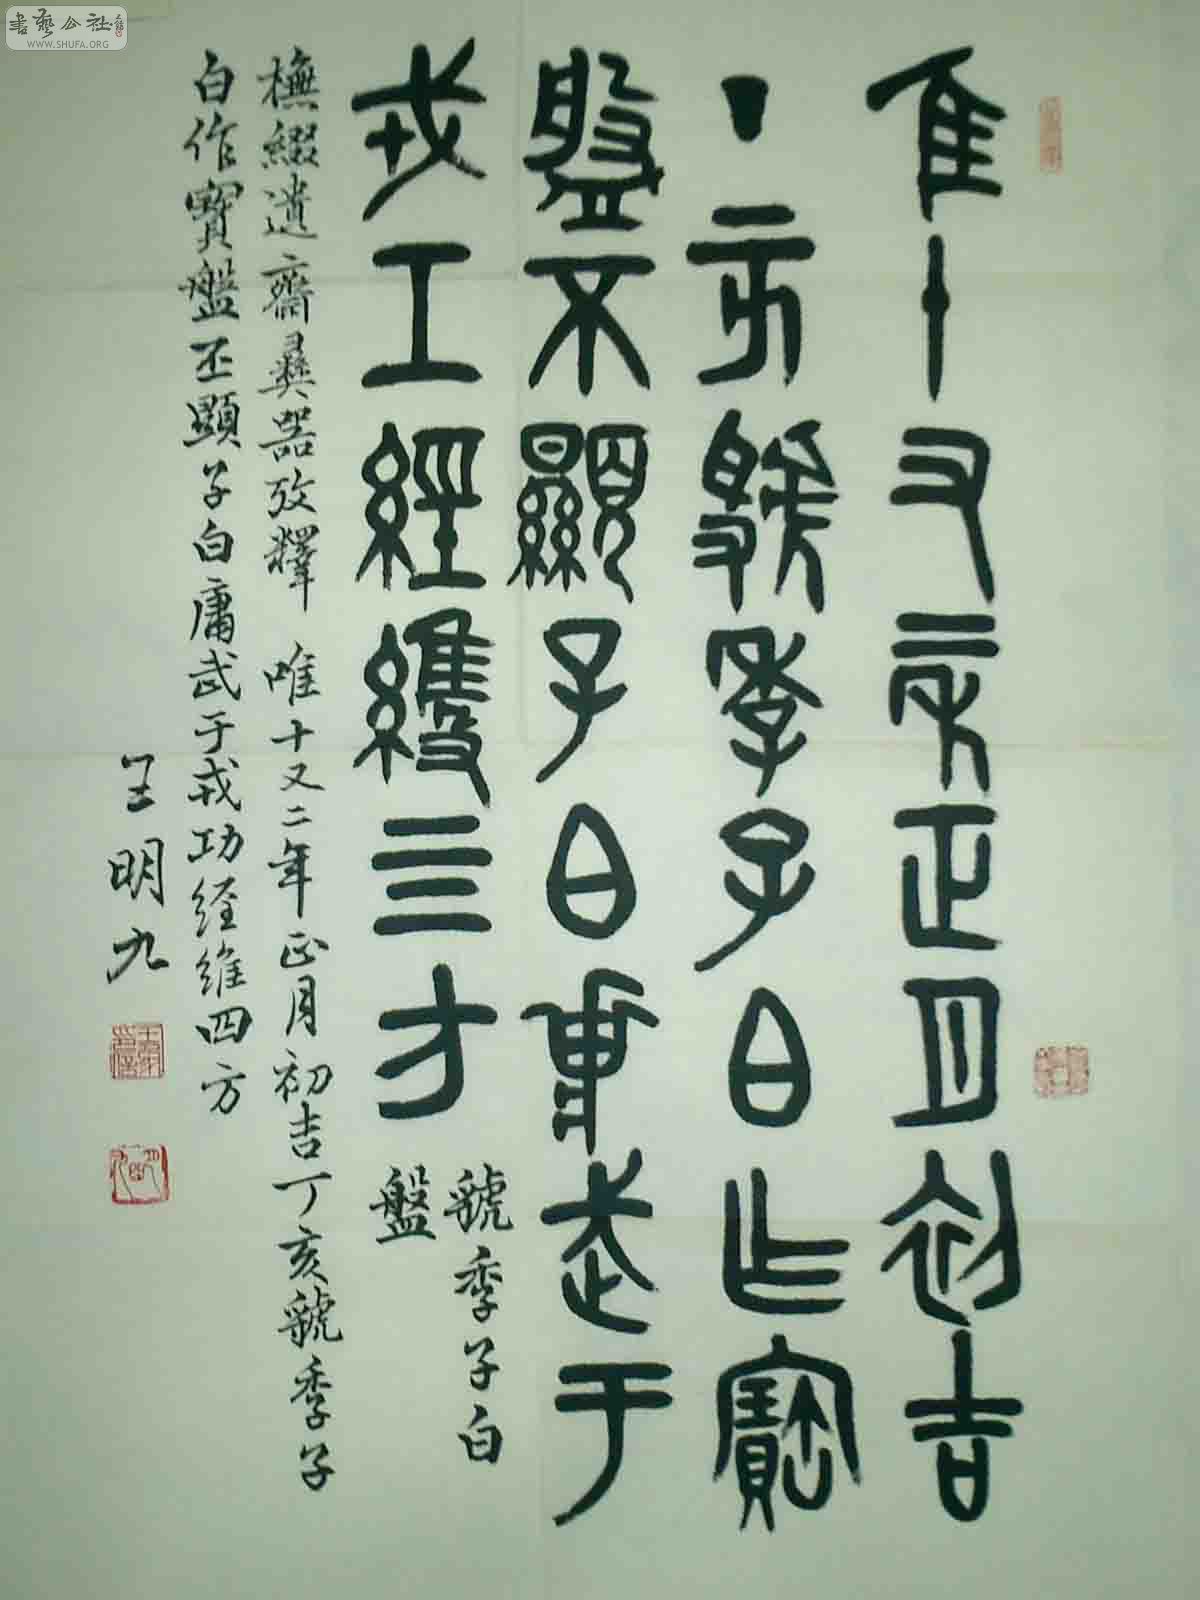 隹十又二年正月初吉
丁亥虢季子白乍寶
盤不顯子白庸武于
戎工經維四方
虢季子白
盤
橅綴遺齋彝器攷釋 唯十又二年正月初吉丁亥虢季子
白作寶盤丕顯子白庸武于戎功经維四方
王明九
書藝公社
WWW.SHUFA.ORG